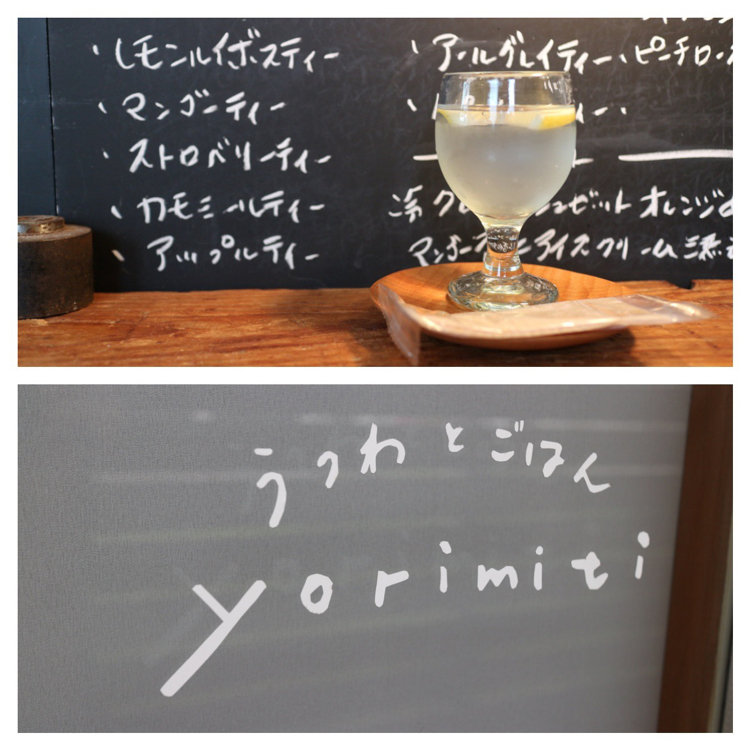 ・レモンルイボスティー
・マンゴーティー
・ストロベリーティー
・カモミールティー
・アップルティー
・アールグレイティー・ピーチ
冷
ゼット オレンジ
アイスクリーム
うつわとごはん
yorimiti